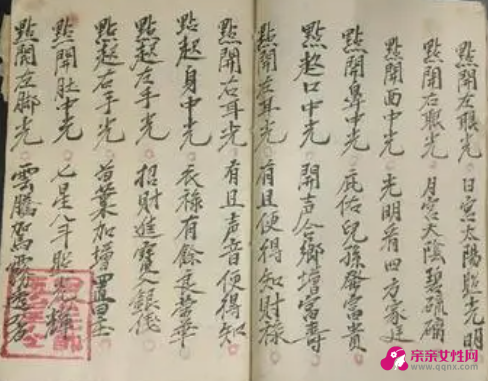 點開左眼光 日宮太陽照光明
點開右眼光 月宮太陰碧琉璃
點開面中光 光明看四方家庭
點開鼻中光 庇佑兒孫發富貴
點起口中光 開声合鄉增富壽
點開左耳光 有且便得知財祿
點開右耳光 有且声音便得知
點起身中光 衣祿有餘享榮華
點起左手光 招財進寶入銀錢
點起右手光 首葉加增置田庄
點開肚中光 七星八斗照光輝
點開左脚光 雲騰駕霧
亲亲女性网
www.qqnx.com